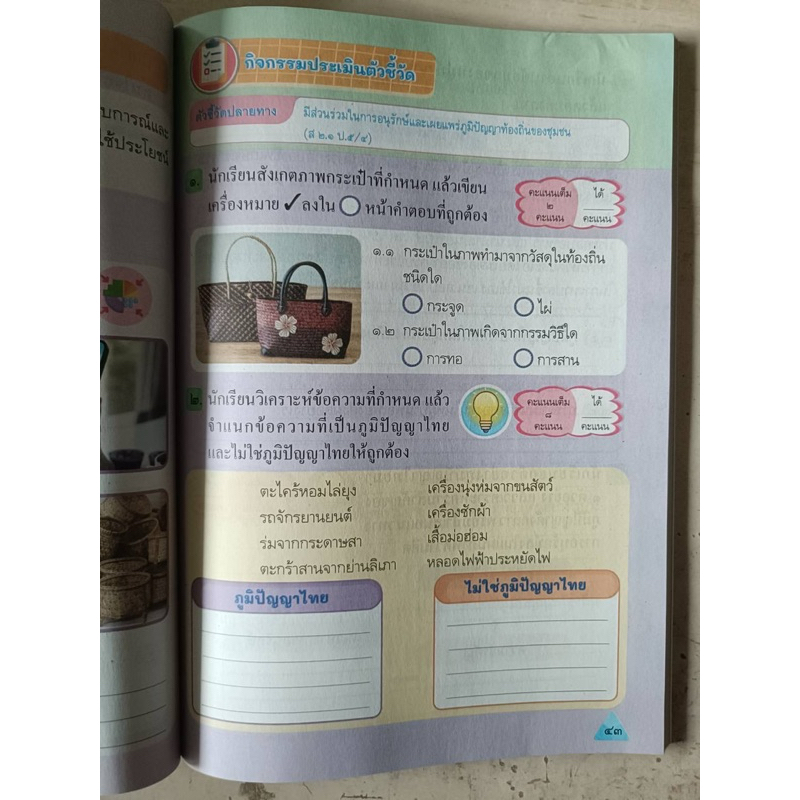 บการณ์และ
ช้ประโยชน์
กิจกรรมประเมินตัวชี้วัด
ตัวชี้วัดปลายทาง
มีส่วนร่วมในการอนุรักษ์และเผยแพร่ภูมิปัญญาท้องถิ่นของชุมชน
(ส ๒.๑ ป.๕/๔)
๑. นักเรียนสังเกตภาพกระเป๋าที่กำหนด แล้วเขียน
เครื่องหมาย ✓ ลงใน ◯ หน้าคำตอบที่ถูกต้อง
คะแนนเต็ม
๒
คะแนน
ได้
คะแนน
๑.๑ กระเป๋าในภาพทำมาจากวัสดุในท้องถิ่น
ชนิดใด
◯ กระจูด ◯ ไผ่
๑.๒ กระเป๋าในภาพเกิดจากกรรมวิธีใด
◯ การทอ ◯ การสาน
๒. นักเรียนวิเคราะห์ข้อความที่กำหนด แล้ว
จำแนกข้อความที่เป็นภูมิปัญญาไทย
และไม่ใช่ภูมิปัญญาไทยให้ถูกต้อง
คะแนนเต็ม
๘
คะแนน
ได้
คะแนน
ตะไคร้หอมไล่ยุง เครื่องนุ่งห่มจากขนสัตว์
รถจักรยานยนต์ เครื่องซักผ้า
ร่มจากกระดาษสา เสื้อม่อฮ่อม
ตะกร้าสานจากย่านลิเภา หลอดไฟฟ้าประหยัดไฟ
ภูมิปัญญาไทย ไม่ใช่ภูมิปัญญาไทย
๔๓